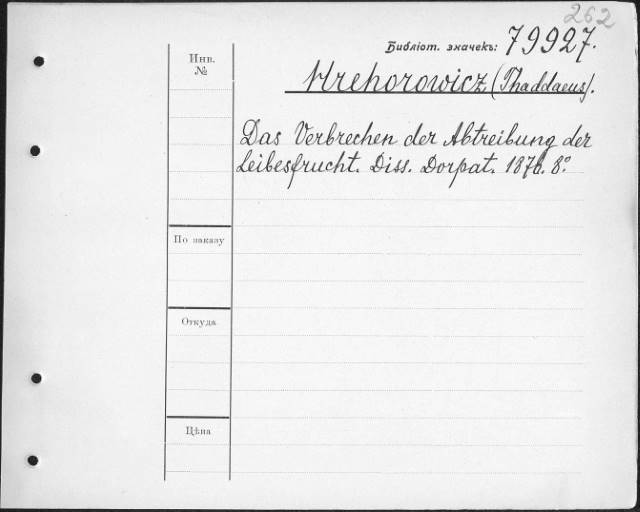 262
Библіот. значекъ: 79927.
Инв.
№
Hrehorowicz, (Thaddaeus).
Das Verbrechen der Abtreibung der
Leibesfrucht. Diss. Dorpat. 1876. 8°.
По заказу
Откуда
Цѣна